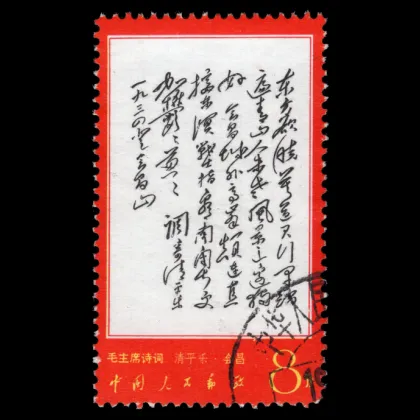 东方欲晓莫道君行早踏
遍青山人未老风景这边独
好会昌城外高峰颠连直
接东溟战士指看南粤更
加郁々葱々 调寄清平乐
一九三四登会昌山
毛主席诗词 清平乐·会昌
中国人民邮政 8